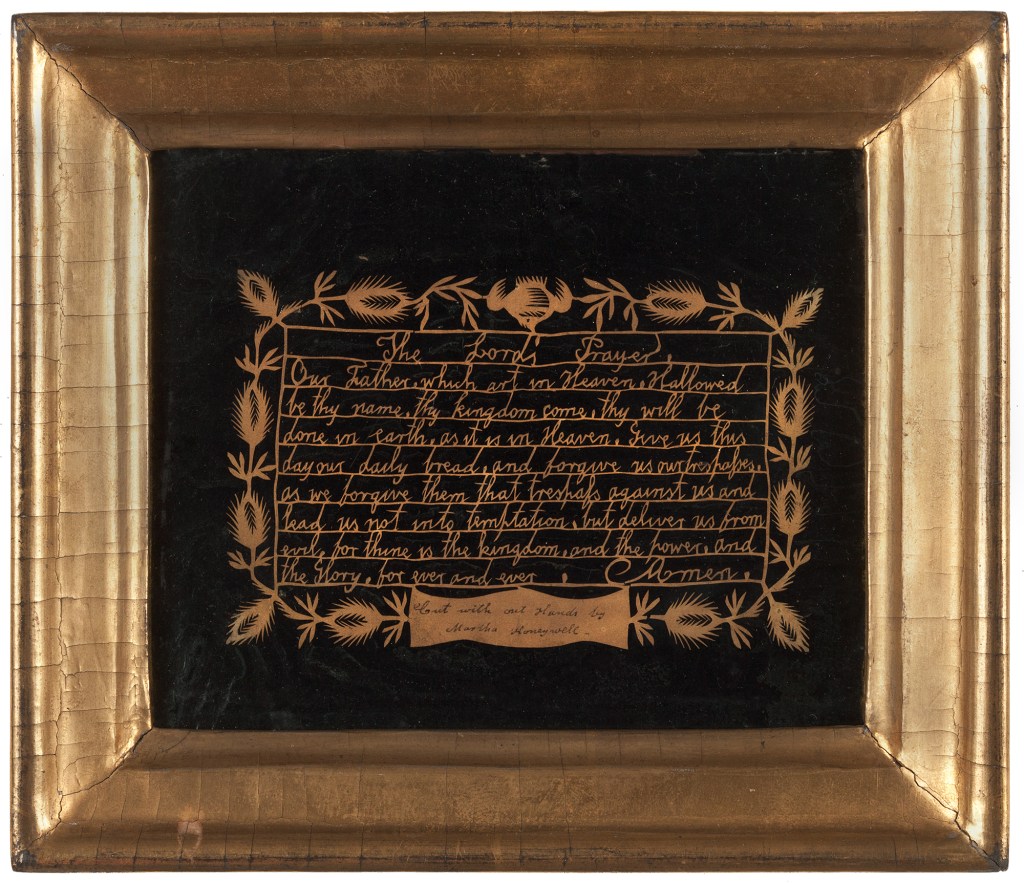 The Lord's Prayer.
Our Father, which art in Heaven, Hallowed
be thy name, thy kingdom come, thy will be
done in earth, as it is in Heaven. Give us this
day our daily bread, and forgive us our trespaſses,
as we forgive them that trespaſs against us and
lead us not into temptation, but deliver us from
evil, for thine is the kingdom, and the power, and
the Glory, for ever and ever . Amen.
Cut with out Hands by
Martha Honeywell